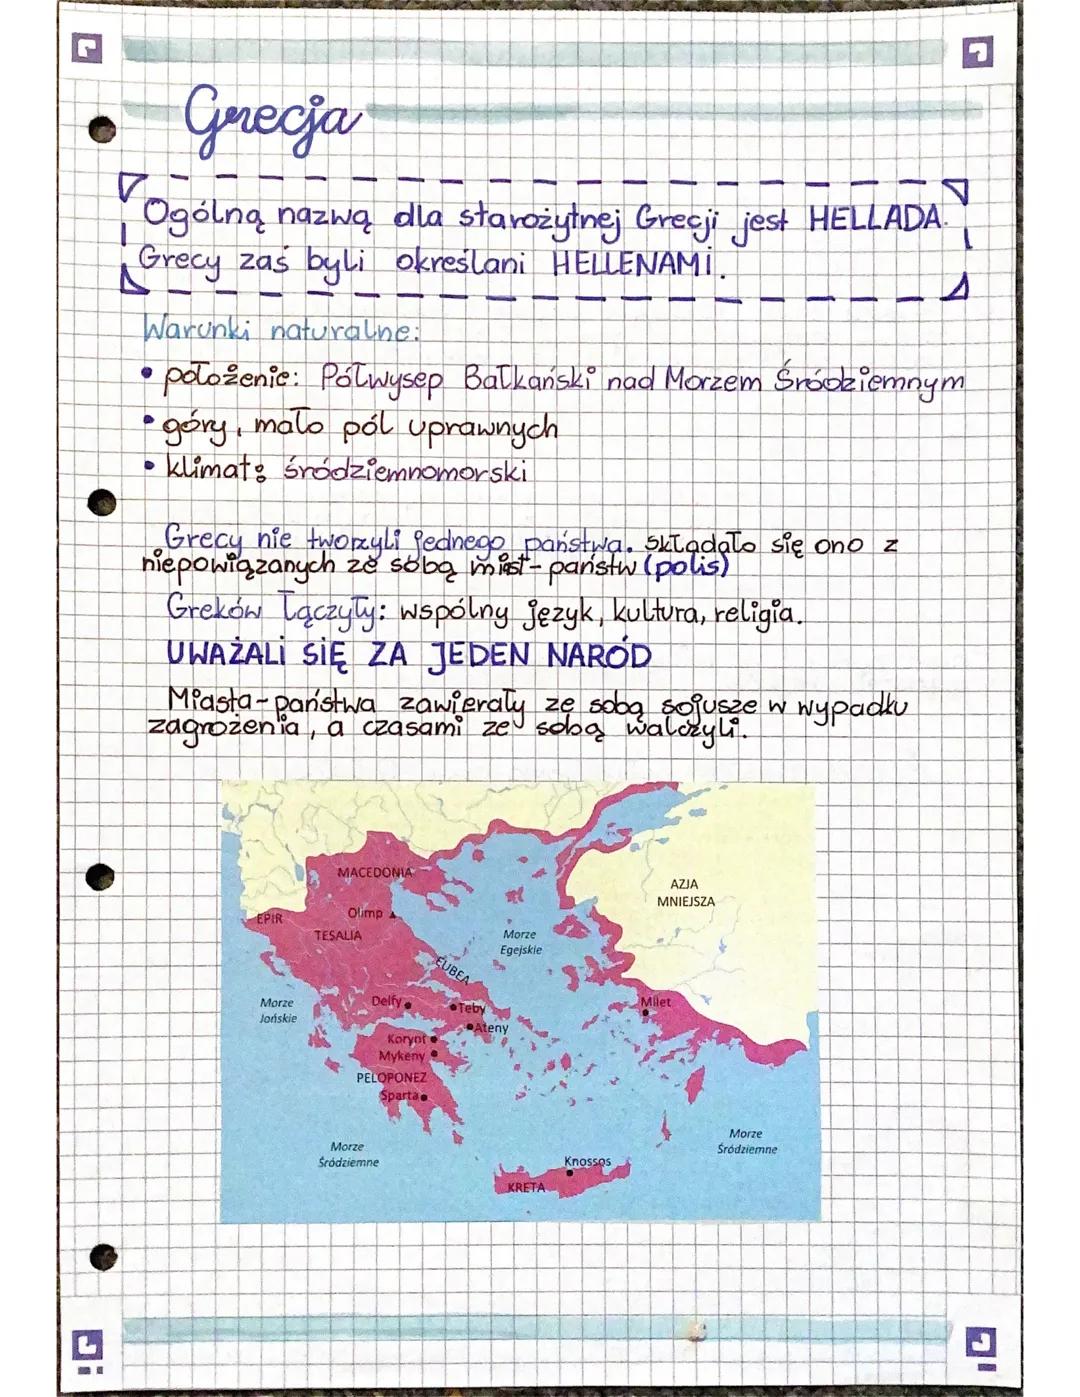 Grecja
Ogólną nazwą dla starożytnej Grecji jest HELLADA.
Grecy zaś byli określani HELLENAMI.
Warunki naturalne:
• położenie: Półwysep Bałkański nad Morzem Śródziemnym
• góry, mało pól uprawnych
• klimat: śródziemnomorski
Grecy nie tworzyli jednego państwa. Składało się ono z
niepowiązanych ze sobą miast-państw (polis)
Greków łączyły: wspólny język, kultura, religia.
UWAŻALI SIĘ ZA JEDEN NARÓD
Miasta-państwa zawierały ze sobą sojusze w wypadku
zagrożenia, a czasami ze sobą walczyli.
MACEDONIA
AZJA
MNIEJSZA
EPIR
Olimp
TESALIA
Morze
Egejskie
EUBEA
Morze
Jońskie
Delfy
Teby
Milet
Ateny
Korynt
Mykeny
PELOPONEZ
Sparta
Morze
Śródziemne
Morze
Śródziemne
Knossos
KRETA